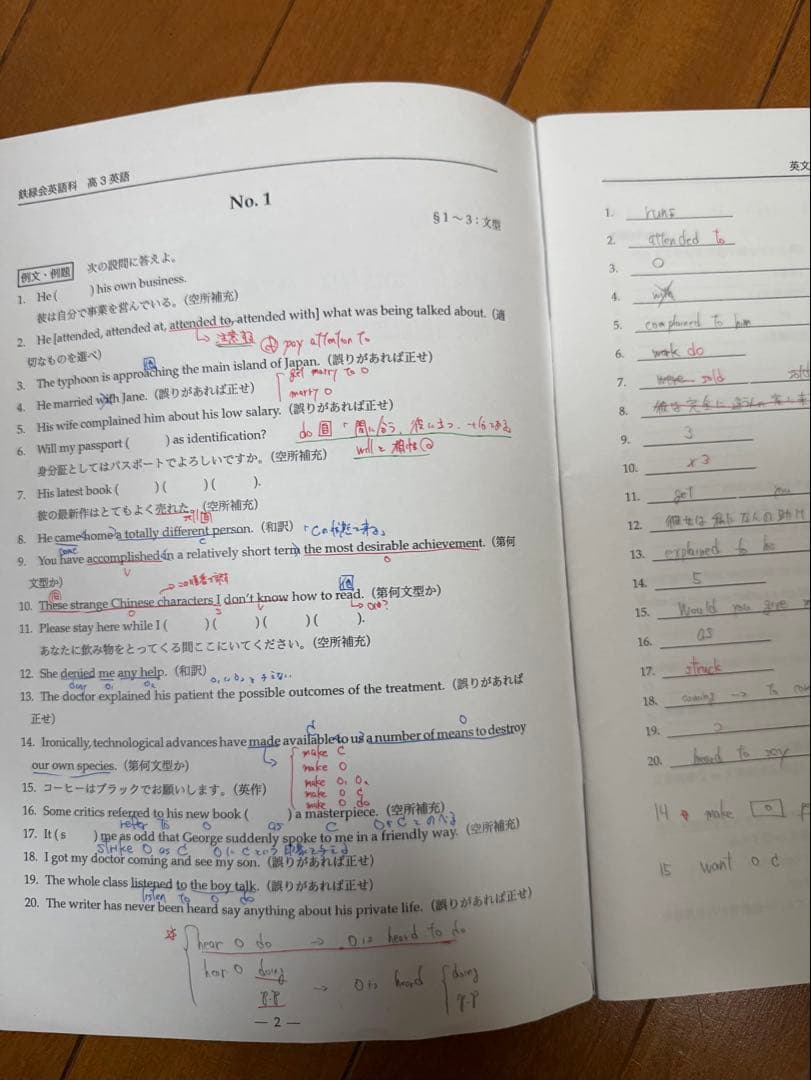 鉄緑会英語科 高3英語
No. 1
§1～3：文型
例文・例題 次の設問に答えよ。
1. He ( ) his own business.
彼は自分で事業を営んでいる。（空所補充）
2. He [attended, attended at, attended to, attended with] what was being talked about.（適
切なものを選べ）
pay attention to
他
3. The typhoon is approaching the main island of Japan.（誤りがあれば正せ）
get marry to O
4. He married with Jane.（誤りがあれば正せ）
marry O
5. His wife complained him about his low salary.（誤りがあれば正せ）
6. Will my passport ( ) as identification?
do 自「間に合う、役に立つ
身分証としてはパスポートでよろしいですか。（空所補充）
7. His latest book ( ) ( ) ( ).
彼の最新作はとてもよく売れた。（空所補充）
8. He came home a totally different person.（和訳）
C
9. You have accomplished in a relatively short term the most desirable achievement.（第何
V O
文型か）
他
10. These strange Chinese characters I don't know how to read.（第何文型か）
O S V
11. Please stay here while I ( ) ( ) ( ) ( ).
あなたに飲み物をとってくる間ここにいてください。（空所補充）
12. She denied me any help.（和訳）
deny O₁ O₂
13. The doctor explained his patient the possible outcomes of the treatment.（誤りがあれば
正せ）
O
14. Ironically, technological advances have made available to us a number of means to destroy
our own species.（第何文型か）
make C
make O
make O₁ O₂
make O C
make O do
15. コーヒーはブラックでお願いします。（英作）
16. Some critics referred to his new book ( ) a masterpiece.（空所補充）
refer to O as C
17. It (s ) me as odd that George suddenly spoke to me in a friendly way.（空所補充）
strike O as C
18. I got my doctor coming and see my son.（誤りがあれば正せ）
19. The whole class listened to the boy talk.（誤りがあれば正せ）
listen to O do
20. The writer has never been heard say anything about his private life.（誤りがあれば正せ）
hear O do → O is heard to do
hear O doing
p.p
→ O is heard
doing
p.p
— 2 —
英文
1. runs
2. attended to
3. O
4. with
5. complained to him
6. work do
7. were sold
8.
9. 3
10. x 3
11. get
12.
13. explained to
14. 5
15. Would you give
16. as
17. struck
18. coming → to
19. 2
20. heard to say
14 make O
15 want O C